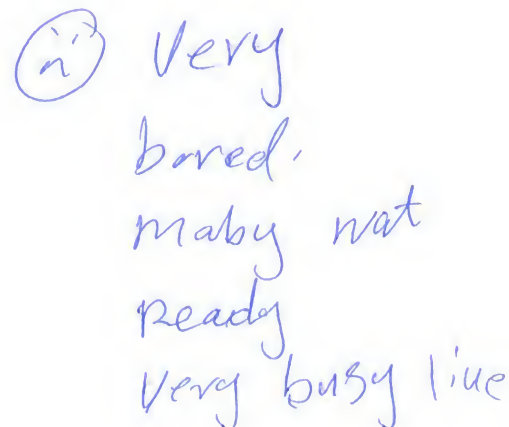 Very
bored.
maby nat
Ready
Very busy live